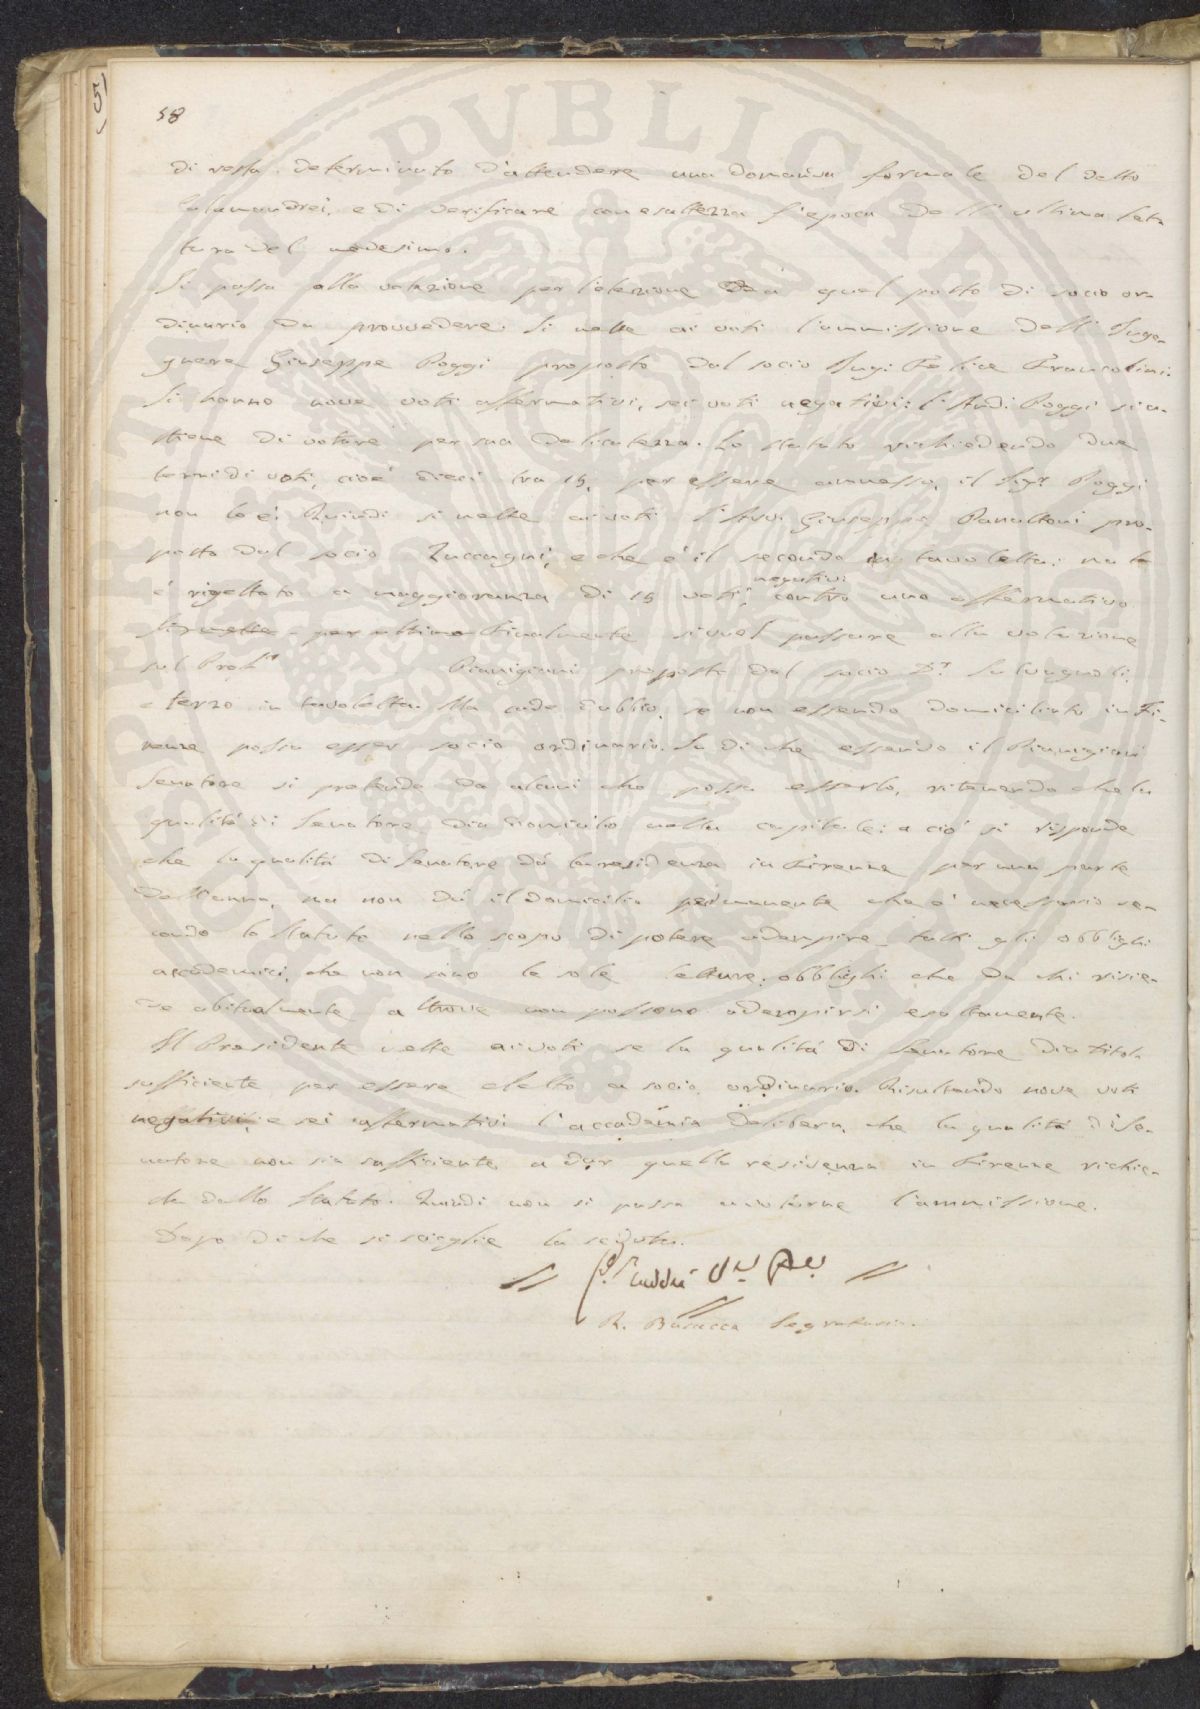 58
di resta determinato d'attendere una domanda formale del detto
Calamandrei, e di verificare con esattezza l'epoca dell'ultima let-
tura del medesimo.
Si passa alla votazione per l'elezione a quel posto di socio or-
dinario da provvedere. Si mette ai voti l'ammissione dell'Inge-
gnere Giuseppe Poggi proposto dal socio Ing. Felice Francolini.
Si hanno nove voti affermativi, sei voti negativi: l' Poggi si a-
stiene di votare per sua delicatezza. Lo statuto richiedendo due
terzi di voti, cioè dieci tra 15, per essere ammesso, il Sigr. Poggi
non lo è. Quindi si mette ai voti l'Avv. Giuseppe Panattoni pro-
posto dal socio Zuccagni, e che è il secondo in tavoletta: ma
è rigettato a maggioranza di 15 voti negativi contro uno affermativo.
Si mette per ultimo Finalmente si vuol passare alla votazione
sul Pianigiani proposto dal socio Dr. Salvagnoli,
e terzo in tavoletta. Ma cade dubbio, se non essendo domiciliato in Fi-
renze possa esser socio ordinario. Su di che essendo il Pianigiani
Senatore si pretende da alcuni che possa esserlo, ritenendo che la
qualità di Senatore dia domicilio nella capitale: a ciò si risponde
che la qualità di Senatore dà la residenza in Firenze per una parte
dell'anno, ma non dà il domicilio permanente che è necessario se-
condo lo Statuto nello scopo di potere adempire tutti gli obblighi
accademici, che non sono le sole letture: obblighi che da chi risie-
de abitualmente altrove non possono adempirsi esattamente.
Il Presidente mette ai voti se la qualità di Senatore dia titolo
sufficiente per essere eletto a socio ordinario. Risultando nove voti
negativi, e sei affermativi l'accademia delibera, che la qualità di Se-
natore non sia sufficiente a dar quella residenza in Firenze richie-
sta dallo Statuto. Quindi non si passa a votarne l'ammissione.
Dopo di che si scioglie la seduta.
R. Busacca Segretario.